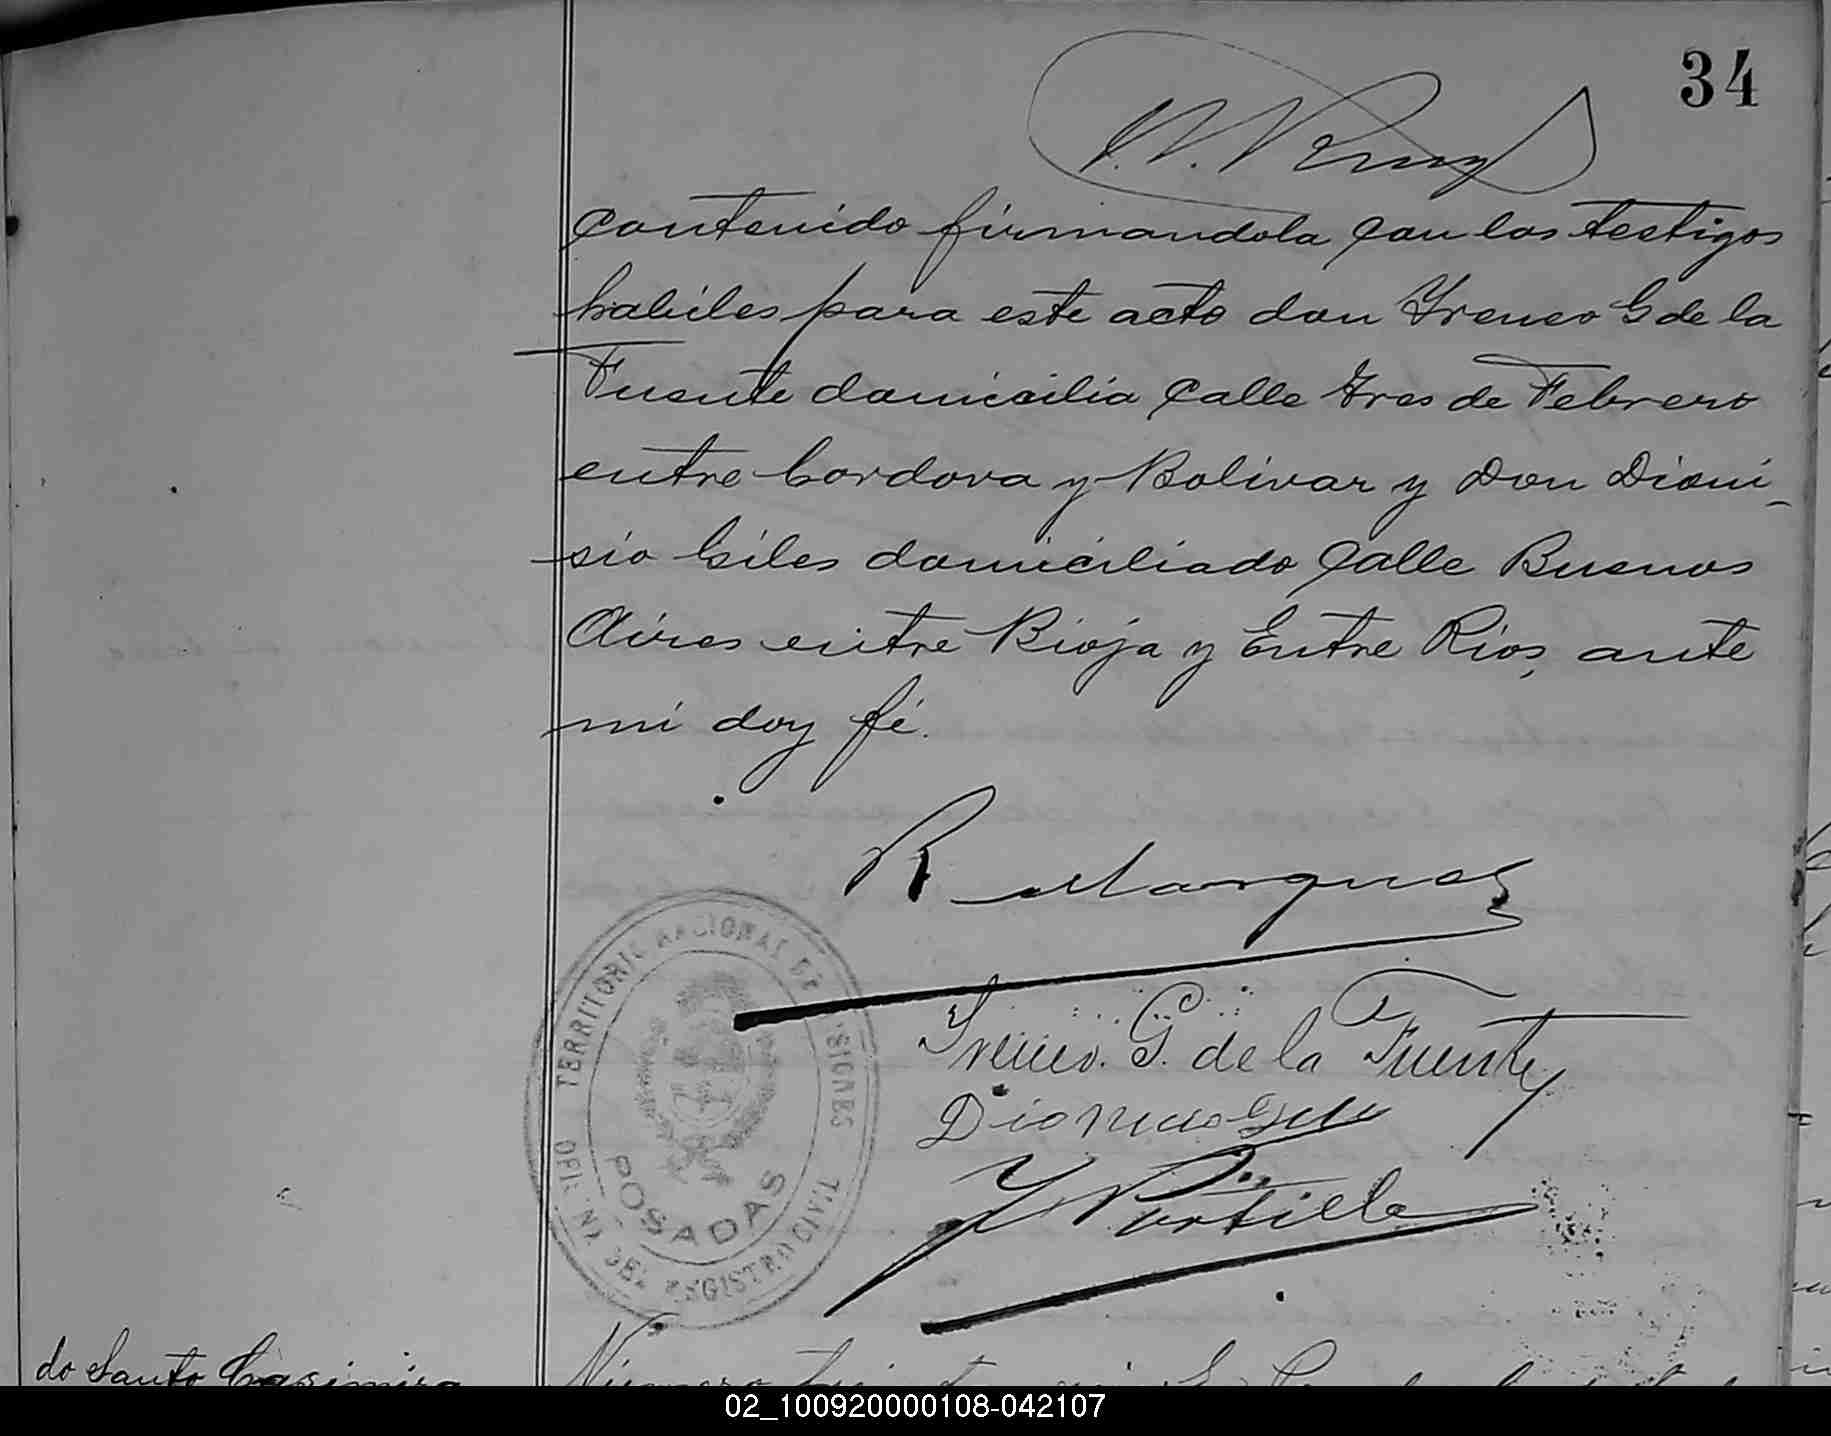 34
contenido firmandola con los testigos
habiles para este acto don Yreneo G de la
Fuente domicilia calle Tres de Febrero
entre Cordova y Bolivar y Don Dioni-
sio Giles domiciliado calle Buenos
Aires entre Rioja y Entre Rios, ante
mi doy fé.
R Marquez
Ireneo. G. de la Fuente
Dionicio Giles
Y Portillo
TERRITORIO NACIONAL DE MISIONES
OFICINA DEL REGISTRO CIVIL
POSADAS
do Santo Casimira
Numero
02_100920000108-042107